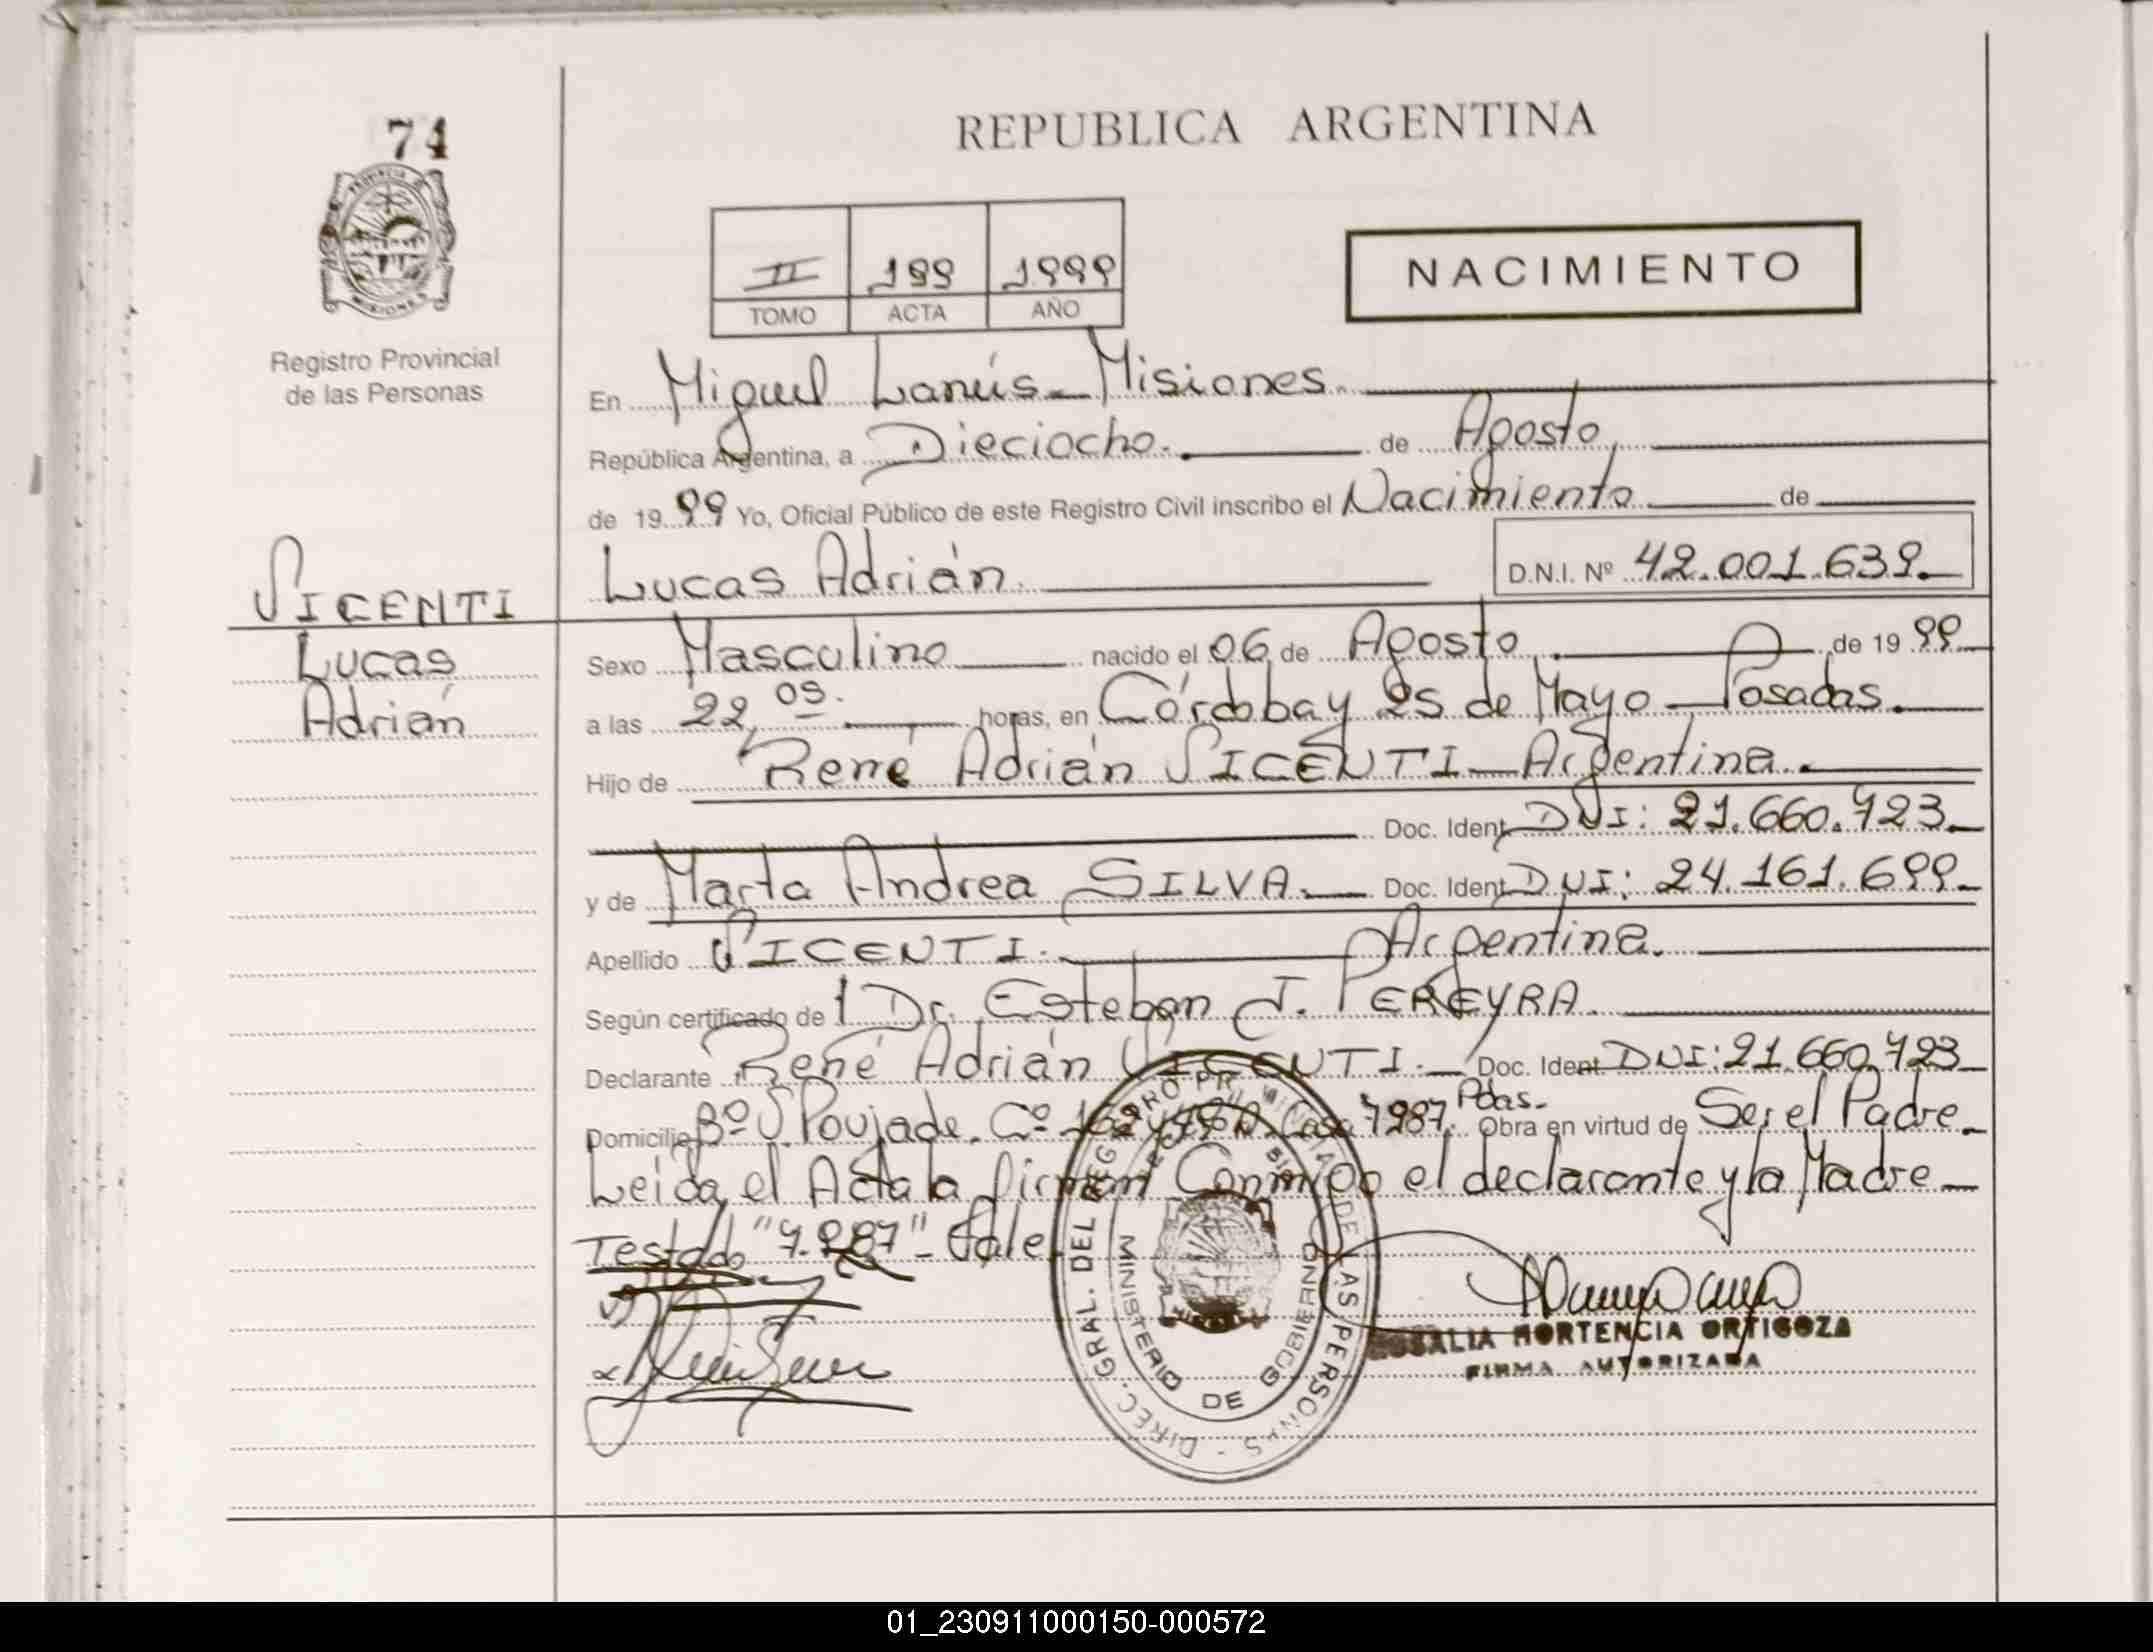 74
REPUBLICA ARGENTINA
II 199 1999
TOMO ACTA AÑO
NACIMIENTO
PROVINCIA DE MISIONES
Registro Provincial
de las Personas
En Miguel Lanús - Misiones.
República Argentina, a Dieciocho. de Agosto,
de 1999 Yo, Oficial Público de este Registro Civil inscribo el Nacimiento de
Lucas Adrián. D.N.I. Nº 42.001.639.
VICENTI
Lucas
Adrián
Sexo Masculino nacido el 06 de Agosto. de 1999
a las 22,05. horas, en Córdoba y 25 de Mayo - Posadas.
Hijo de René Adrián VICENTI - Argentina.
Doc. Ident. DNI: 21.660.723.
y de Marta Andrea SILVA. Doc. Ident. DNI: 24.161.699.
Apellido VICENTI. Argentina.
Según certificado de 1 Dr. Esteban J. PEREYRA.
Declarante René Adrián VICENTI. Doc. Ident. DNI: 21.660.723
Domicilio Bº S. Poujade. Cº Casa 7287. Pdas. Obra en virtud de Ser el Padre.
Leida el Acta la firman Conmigo el declarante y la Madre
Testado "7.287" - Vale
DIREC. GRAL. DEL REGISTRO PROVINCIAL DE LAS PERSONAS
MINISTERIO DE GOBIERNO
ROSALIA HORTENCIA ORTIGOZA
FIRMA AUTORIZADA
01_230911000150-000572